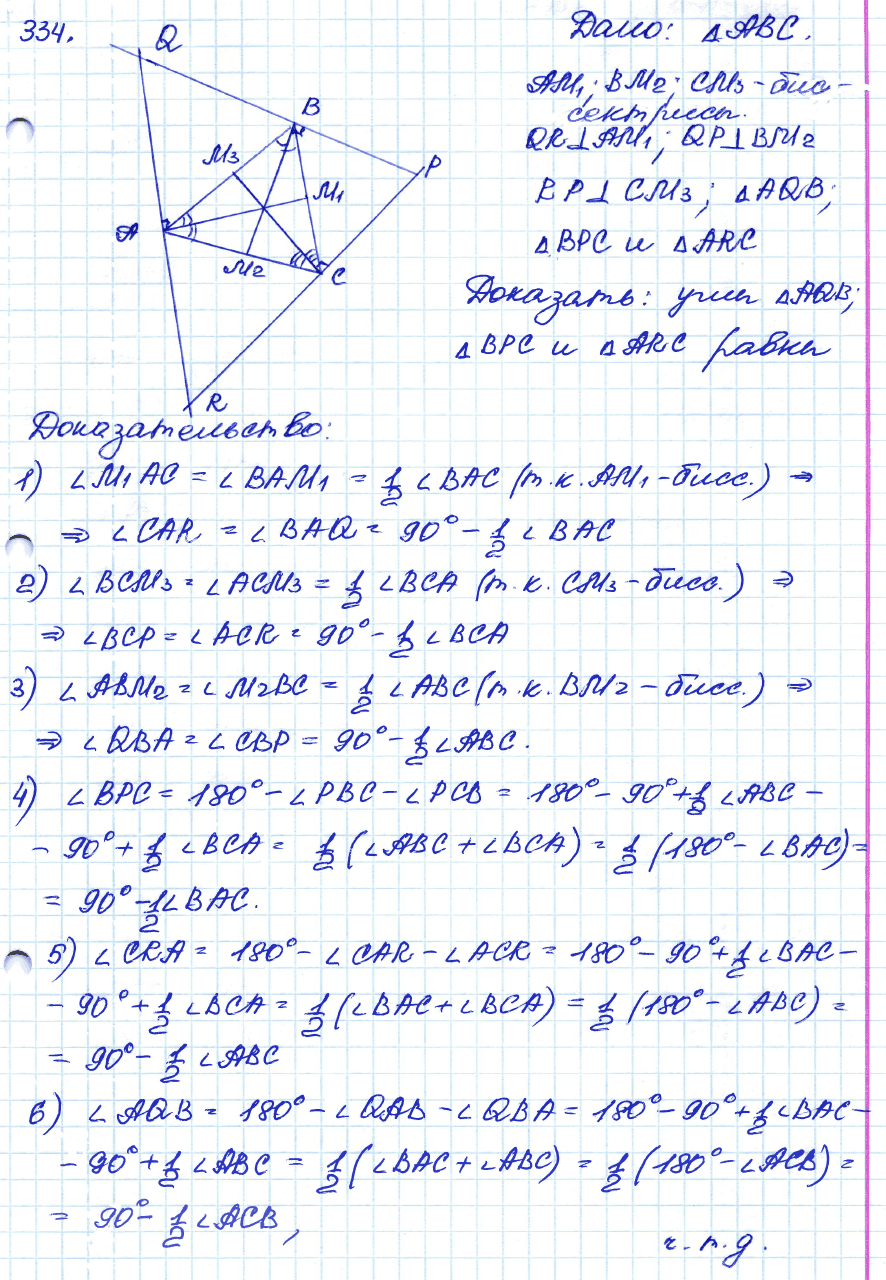 334.
Дано: △ABC.
AM₁; BM₂; CM₃ - бис-
сектрисы.
QR⊥AM₁; QP⊥BM₂
RP⊥CM₃; △AQB;
△BPC и △ARC
Доказать: углы △AQB;
△BPC и △ARC равны
Q
B
M₃
P
M₁
A
M₂
C
R
Доказательство:
1) ∠M₁AC = ∠BAM₁ = 1/2 ∠BAC (т.к. AM₁-бисс.) ⇒
⇒ ∠CAR = ∠BAQ = 90° - 1/2 ∠BAC
2) ∠BCM₃ = ∠ACM₃ = 1/2 ∠BCA (т.к. CM₃-бисс.) ⇒
⇒ ∠BCP = ∠ACR = 90° - 1/2 ∠BCA
3) ∠ABM₂ = ∠M₂BC = 1/2 ∠ABC (т.к. BM₂ - бисс.) ⇒
⇒ ∠QBA = ∠CBP = 90° - 1/2 ∠ABC.
4) ∠BPC = 180° - ∠PBC - ∠PCB = 180° - 90° + 1/2 ∠ABC -
- 90° + 1/2 ∠BCA = 1/2 (∠ABC + ∠BCA) = 1/2 (180° - ∠BAC) =
= 90° - 1/2 ∠BAC.
5) ∠CRA = 180° - ∠CAR - ∠ACR = 180° - 90° + 1/2 ∠BAC -
- 90° + 1/2 ∠BCA = 1/2 (∠BAC + ∠BCA) = 1/2 (180° - ∠ABC) =
= 90° - 1/2 ∠ABC
6) ∠AQB = 180° - ∠QAB - ∠QBA = 180° - 90° + 1/2 ∠BAC -
- 90° + 1/2 ∠ABC = 1/2 (∠BAC + ∠ABC) = 1/2 (180° - ∠ACB) =
= 90° - 1/2 ∠ACB,
ч.т.д.